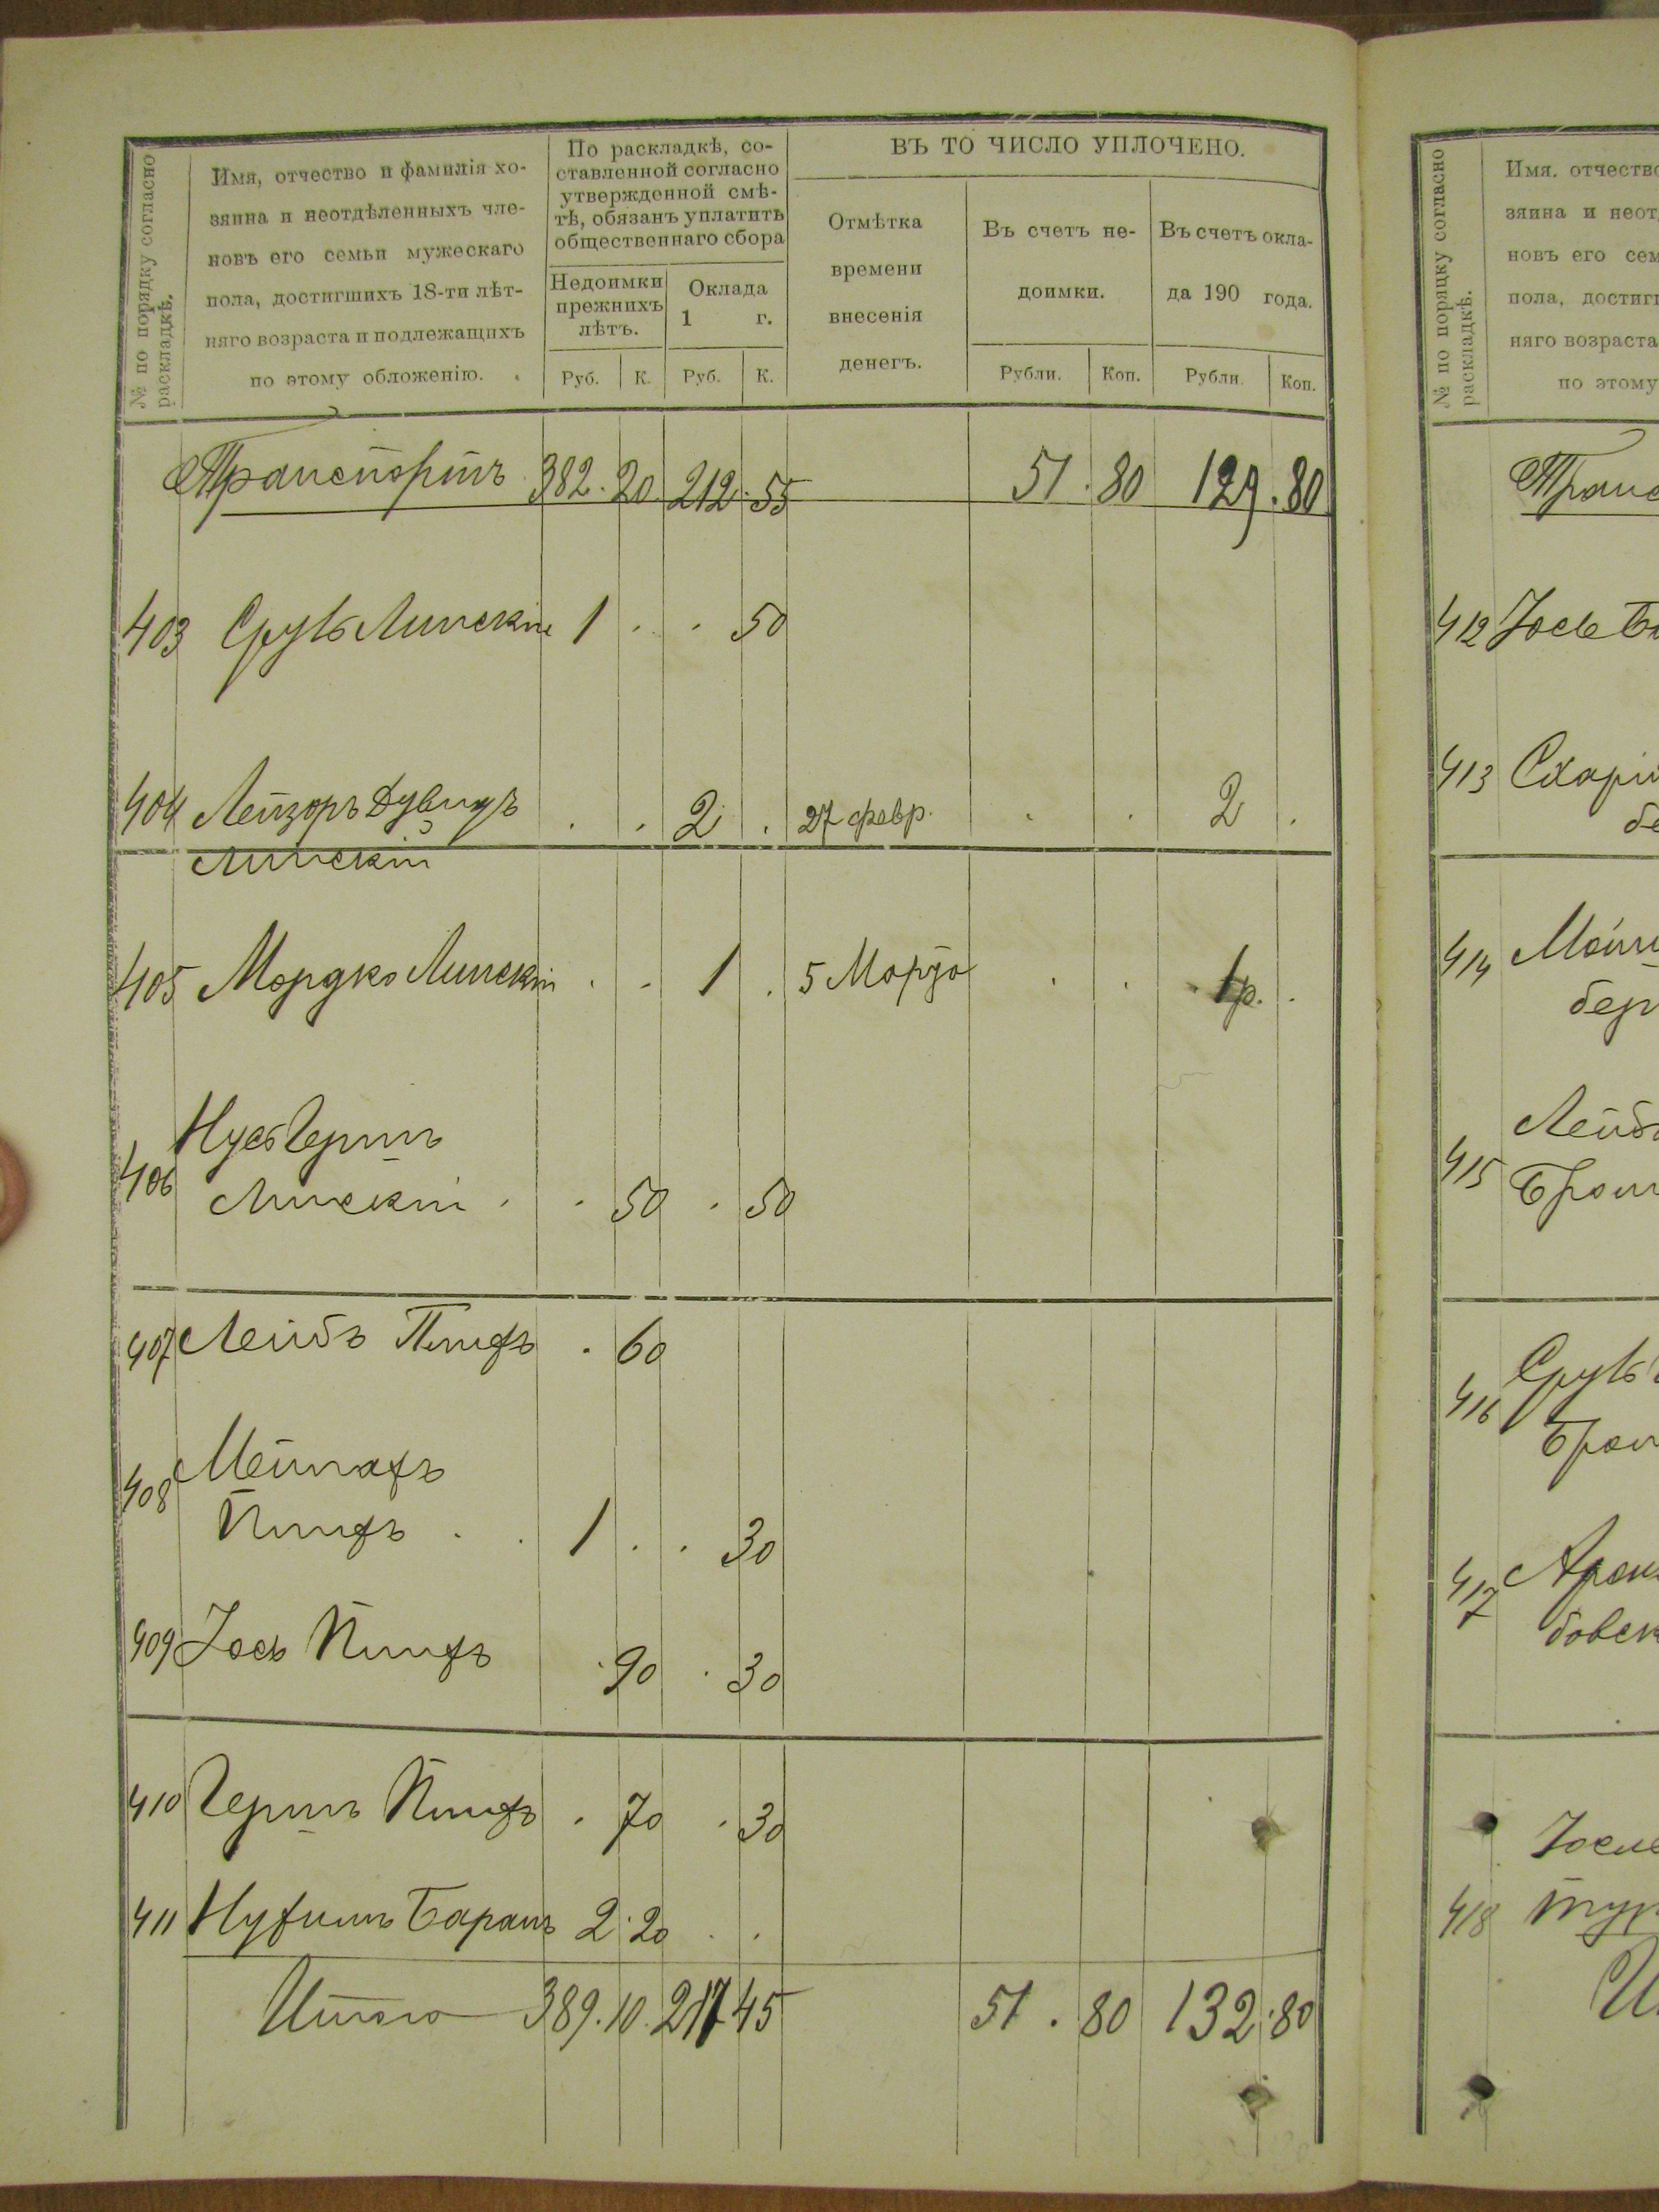 № по порядку согласно раскладкѣ.
Имя, отчество и фамилія хо-
зяина и неотдѣленныхъ чле-
новъ его семьи мужескаго
пола, достигшихъ 18-ти лѣт-
няго возраста и подлежащихъ
по этому обложенію.
По раскладкѣ, со-
ставленной согласно
утвержденной смѣ-
тѣ, обязанъ уплатить
общественнаго сбора
Недоимки прежнихъ лѣтъ.
Оклада 1 г.
Руб. К. Руб. К.
ВЪ ТО ЧИСЛО УПЛОЧЕНО.
Отмѣтка
времени
внесенія
денегъ.
Въ счетъ не-
доимки.
Въ счетъ окла-
да 190 года.
Рубли. Коп. Рубли. Коп.
Транспортъ 382. 20 212. 55 51. 80 129. 80
403 Сруль Липскій 1 . . 50
404 Лейзоръ Дувидъ . . 2 . 27 февр. . . 2 .
Липскій
405 Мордко Липскій . . 1 . 5 Марта . . 1р. .
Нусь Герш
406 Липскій . . 50 . 50
407 Лейбъ . 60
408
1 . . 30
409 Іось . 90 . 30
410 Гершъ . 70 . 30
411 Нухимъ Баранъ 2. 20 . .
Итого 389. 10. 217 45 51. 80 132. 80
№ по порядку согласно раскладкѣ.
Имя. отчество
зяина и неот
новъ его сем
пола, достиг
няго возраста
по этому
Транс
412 Іось
413
414
бер
Лейб
415
416 Сруль
417 Арон
бовск
418